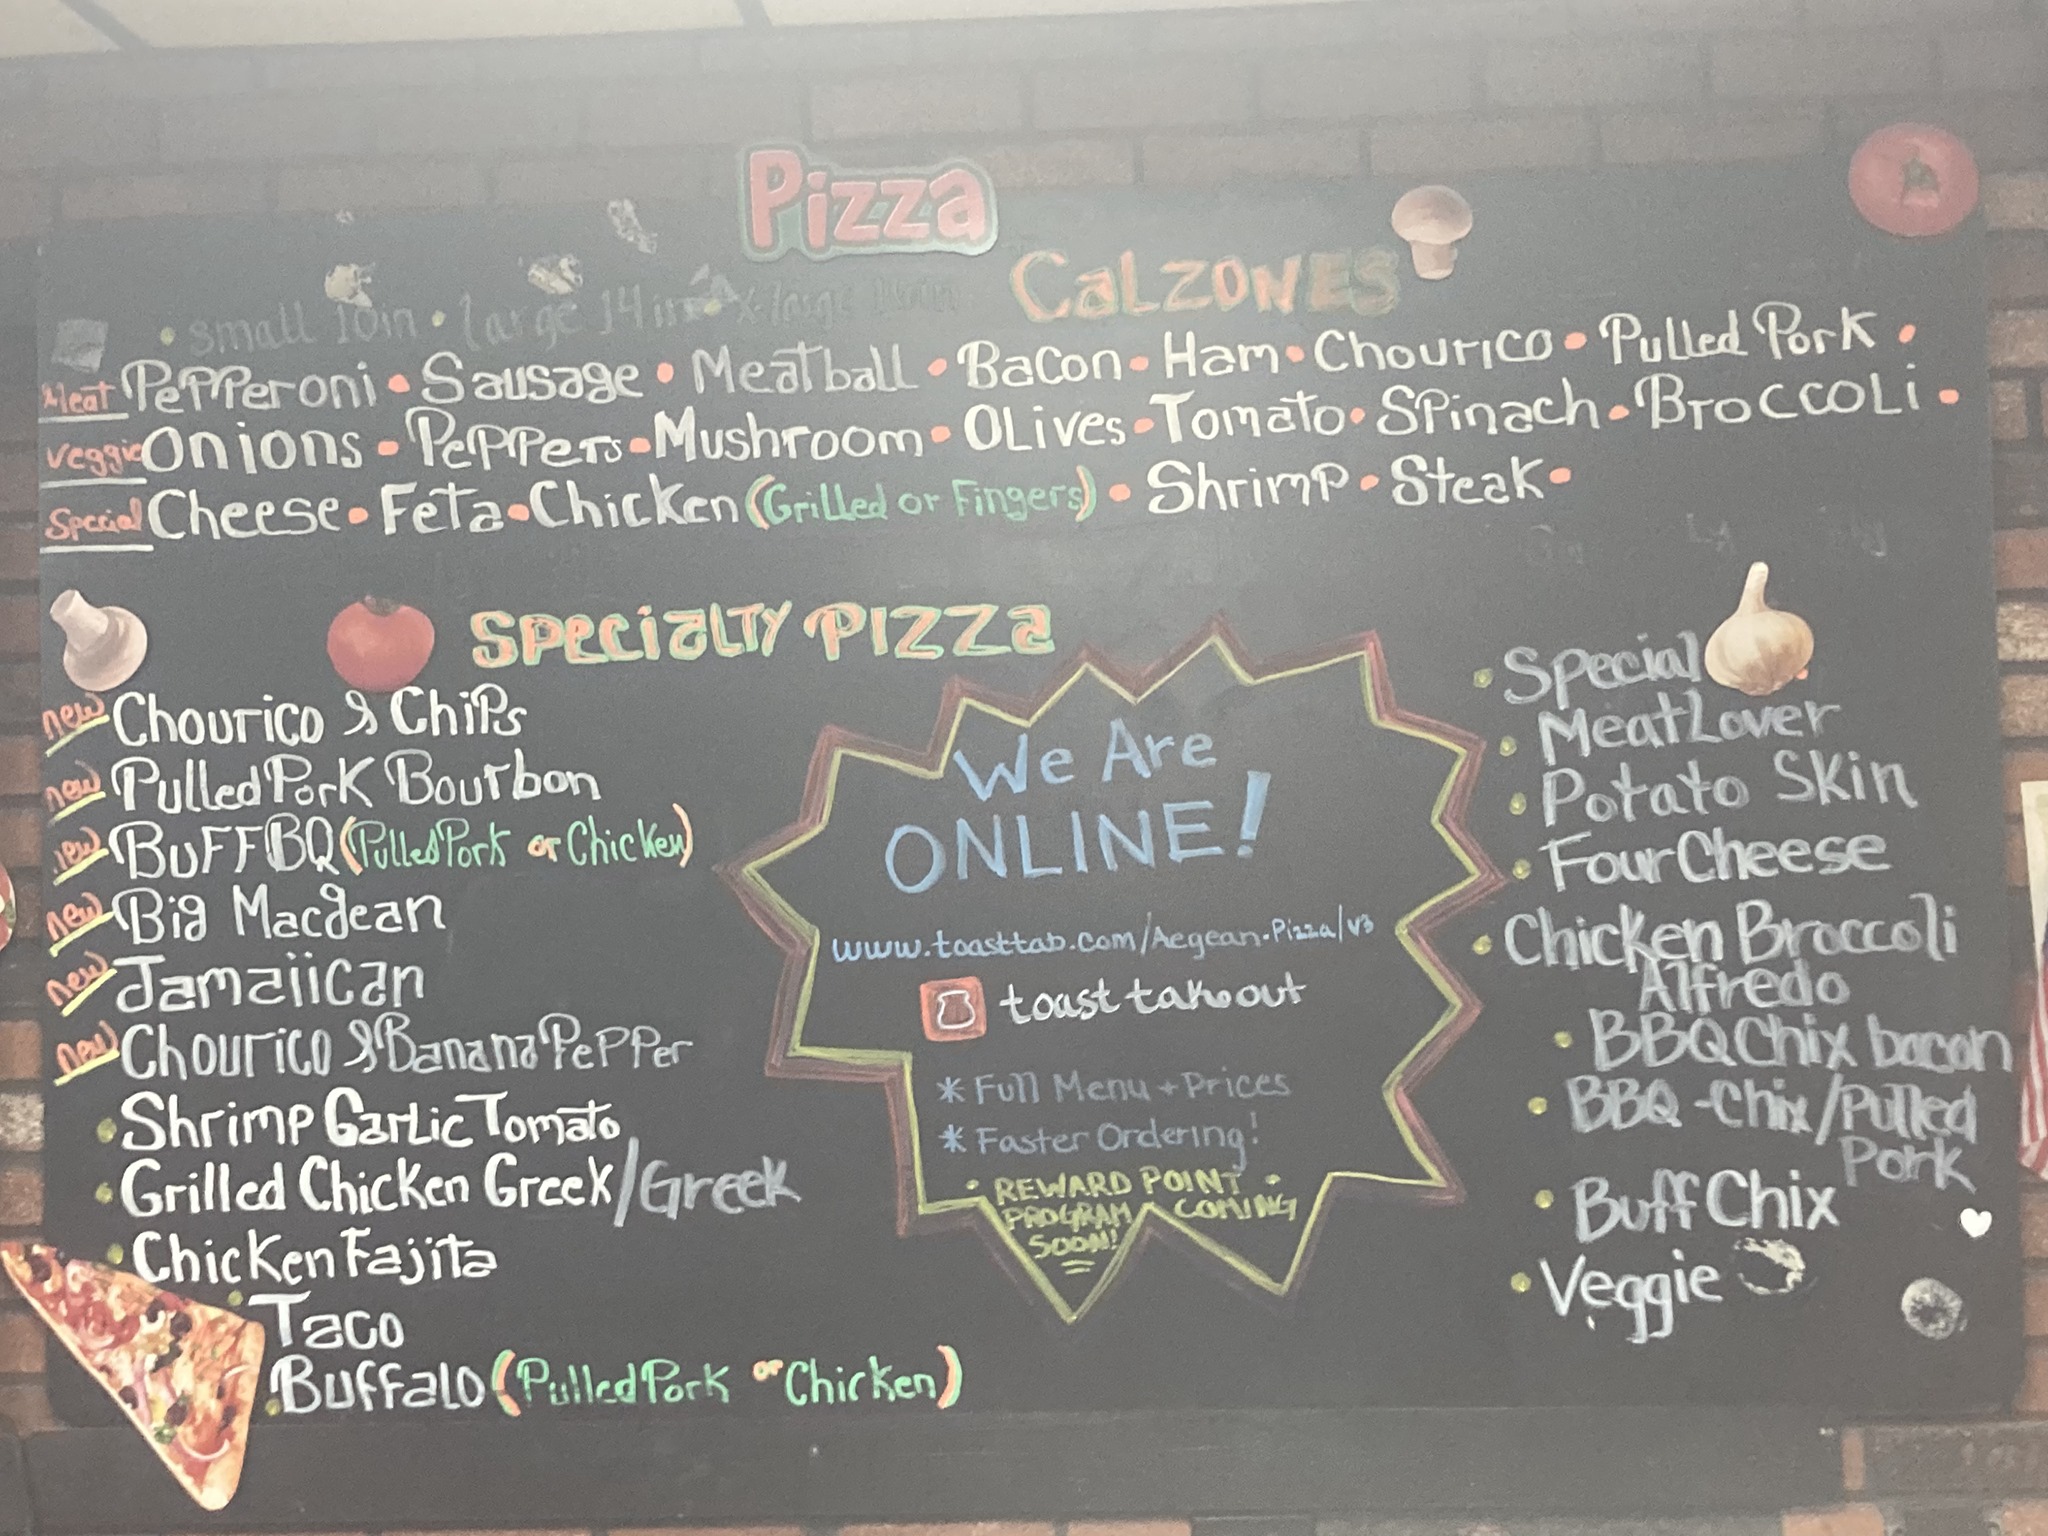 Pizza
CALZONES
• small 10in • large 14in • x-large
Meat Pepperoni • Sausage • Meatball • Bacon • Ham • Chourico • Pulled Pork •
Veggie Onions • Peppers • Mushroom • Olives • Tomato • Spinach • Broccoli •
Special Cheese • Feta • Chicken (Grilled or Fingers) • Shrimp • Steak •
SPECIALTY PIZZA
new Chourico & Chips
new Pulled Pork Bourbon
new BuFFBQ (Pulled Pork or Chicken)
new Big Macgean
new Jamaiican
new Chourico & Banana Pepper
• Shrimp Garlic Tomato
• Grilled Chicken Greek/Greek
• Chicken Fajita
• Taco
• Buffalo (Pulled Pork or Chicken)
We Are
ONLINE!
www.toasttab.com/Aegean-Pizza/v3
toast takeout
* Full Menu + Prices
* Faster Ordering!
• REWARD POINT •
PROGRAM COMING
SOON!
• Special
• Meat Lover
• Potato Skin
• Four Cheese
• Chicken Broccoli
Alfredo
• BBQ Chix bacon
• BBQ - Chix/Pulled
Pork
• Buff Chix
• Veggie